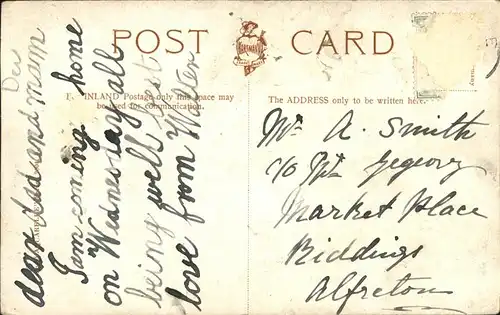 POST CARD
F. INLAND Postage only this space may
be used for communication.
The ADDRESS only to be written here.
dear dad and mam
I am coming home
on Wednesday all
being well best
love from Walter
Mr A. Smith
c/o Mr
Market Place
Riddings
Alfreton